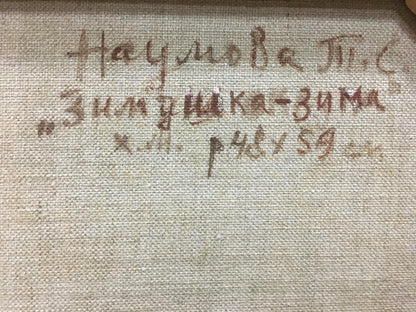 Наумова Т.С
„Зимушка-зима"
х.м. р 48х59 см.